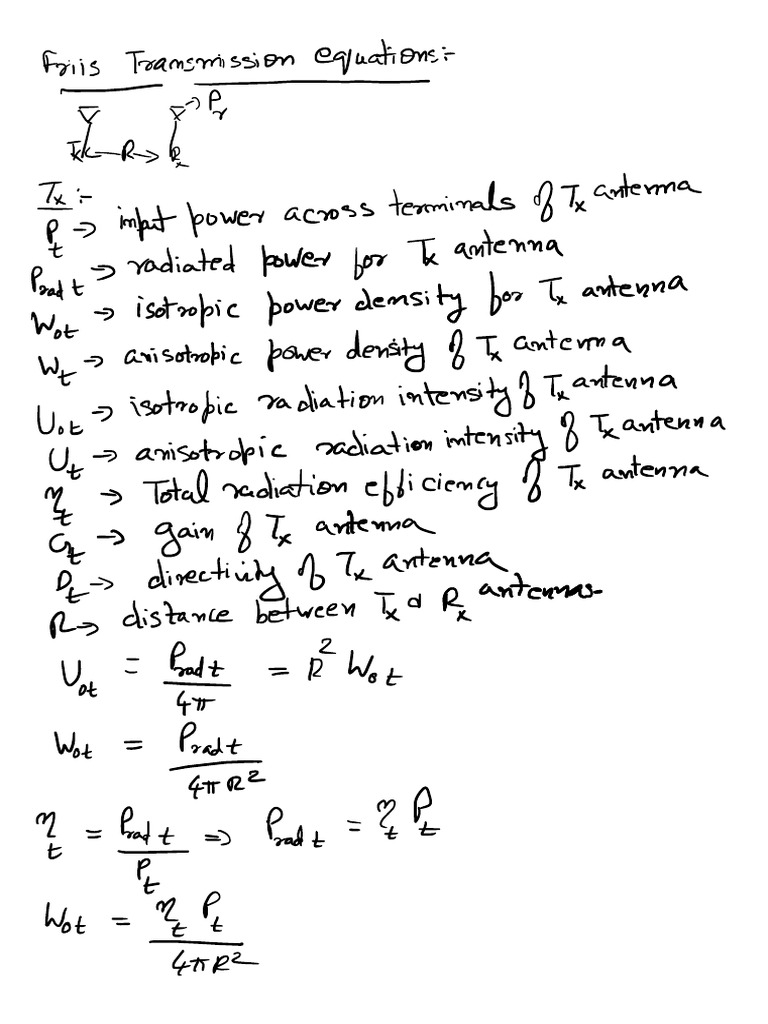 Friis Transmission equations:-
→ Pr
Tx R → Rx
Tx :-
Pt → input power across terminals of Tx antenna
Prad t → radiated power for Tx antenna
Wot → isotropic power density for Tx antenna
Wt → anisotropic power density of Tx antenna
Uot → isotropic radiation intensity of Tx antenna
Ut → anisotropic radiation intensity of Tx antenna
ηt → Total radiation efficiency of Tx antenna
Gt → gain of Tx antenna
Dt → directivity of Tx antenna
R → distance between Tx & Rx antennas.
Uot = Prad t / 4π = R² Wot
Wot = Prad t / 4πR²
ηt = Prad t / Pt ⇒ Prad t = ηt Pt
Wot = ηt Pt / 4πR²